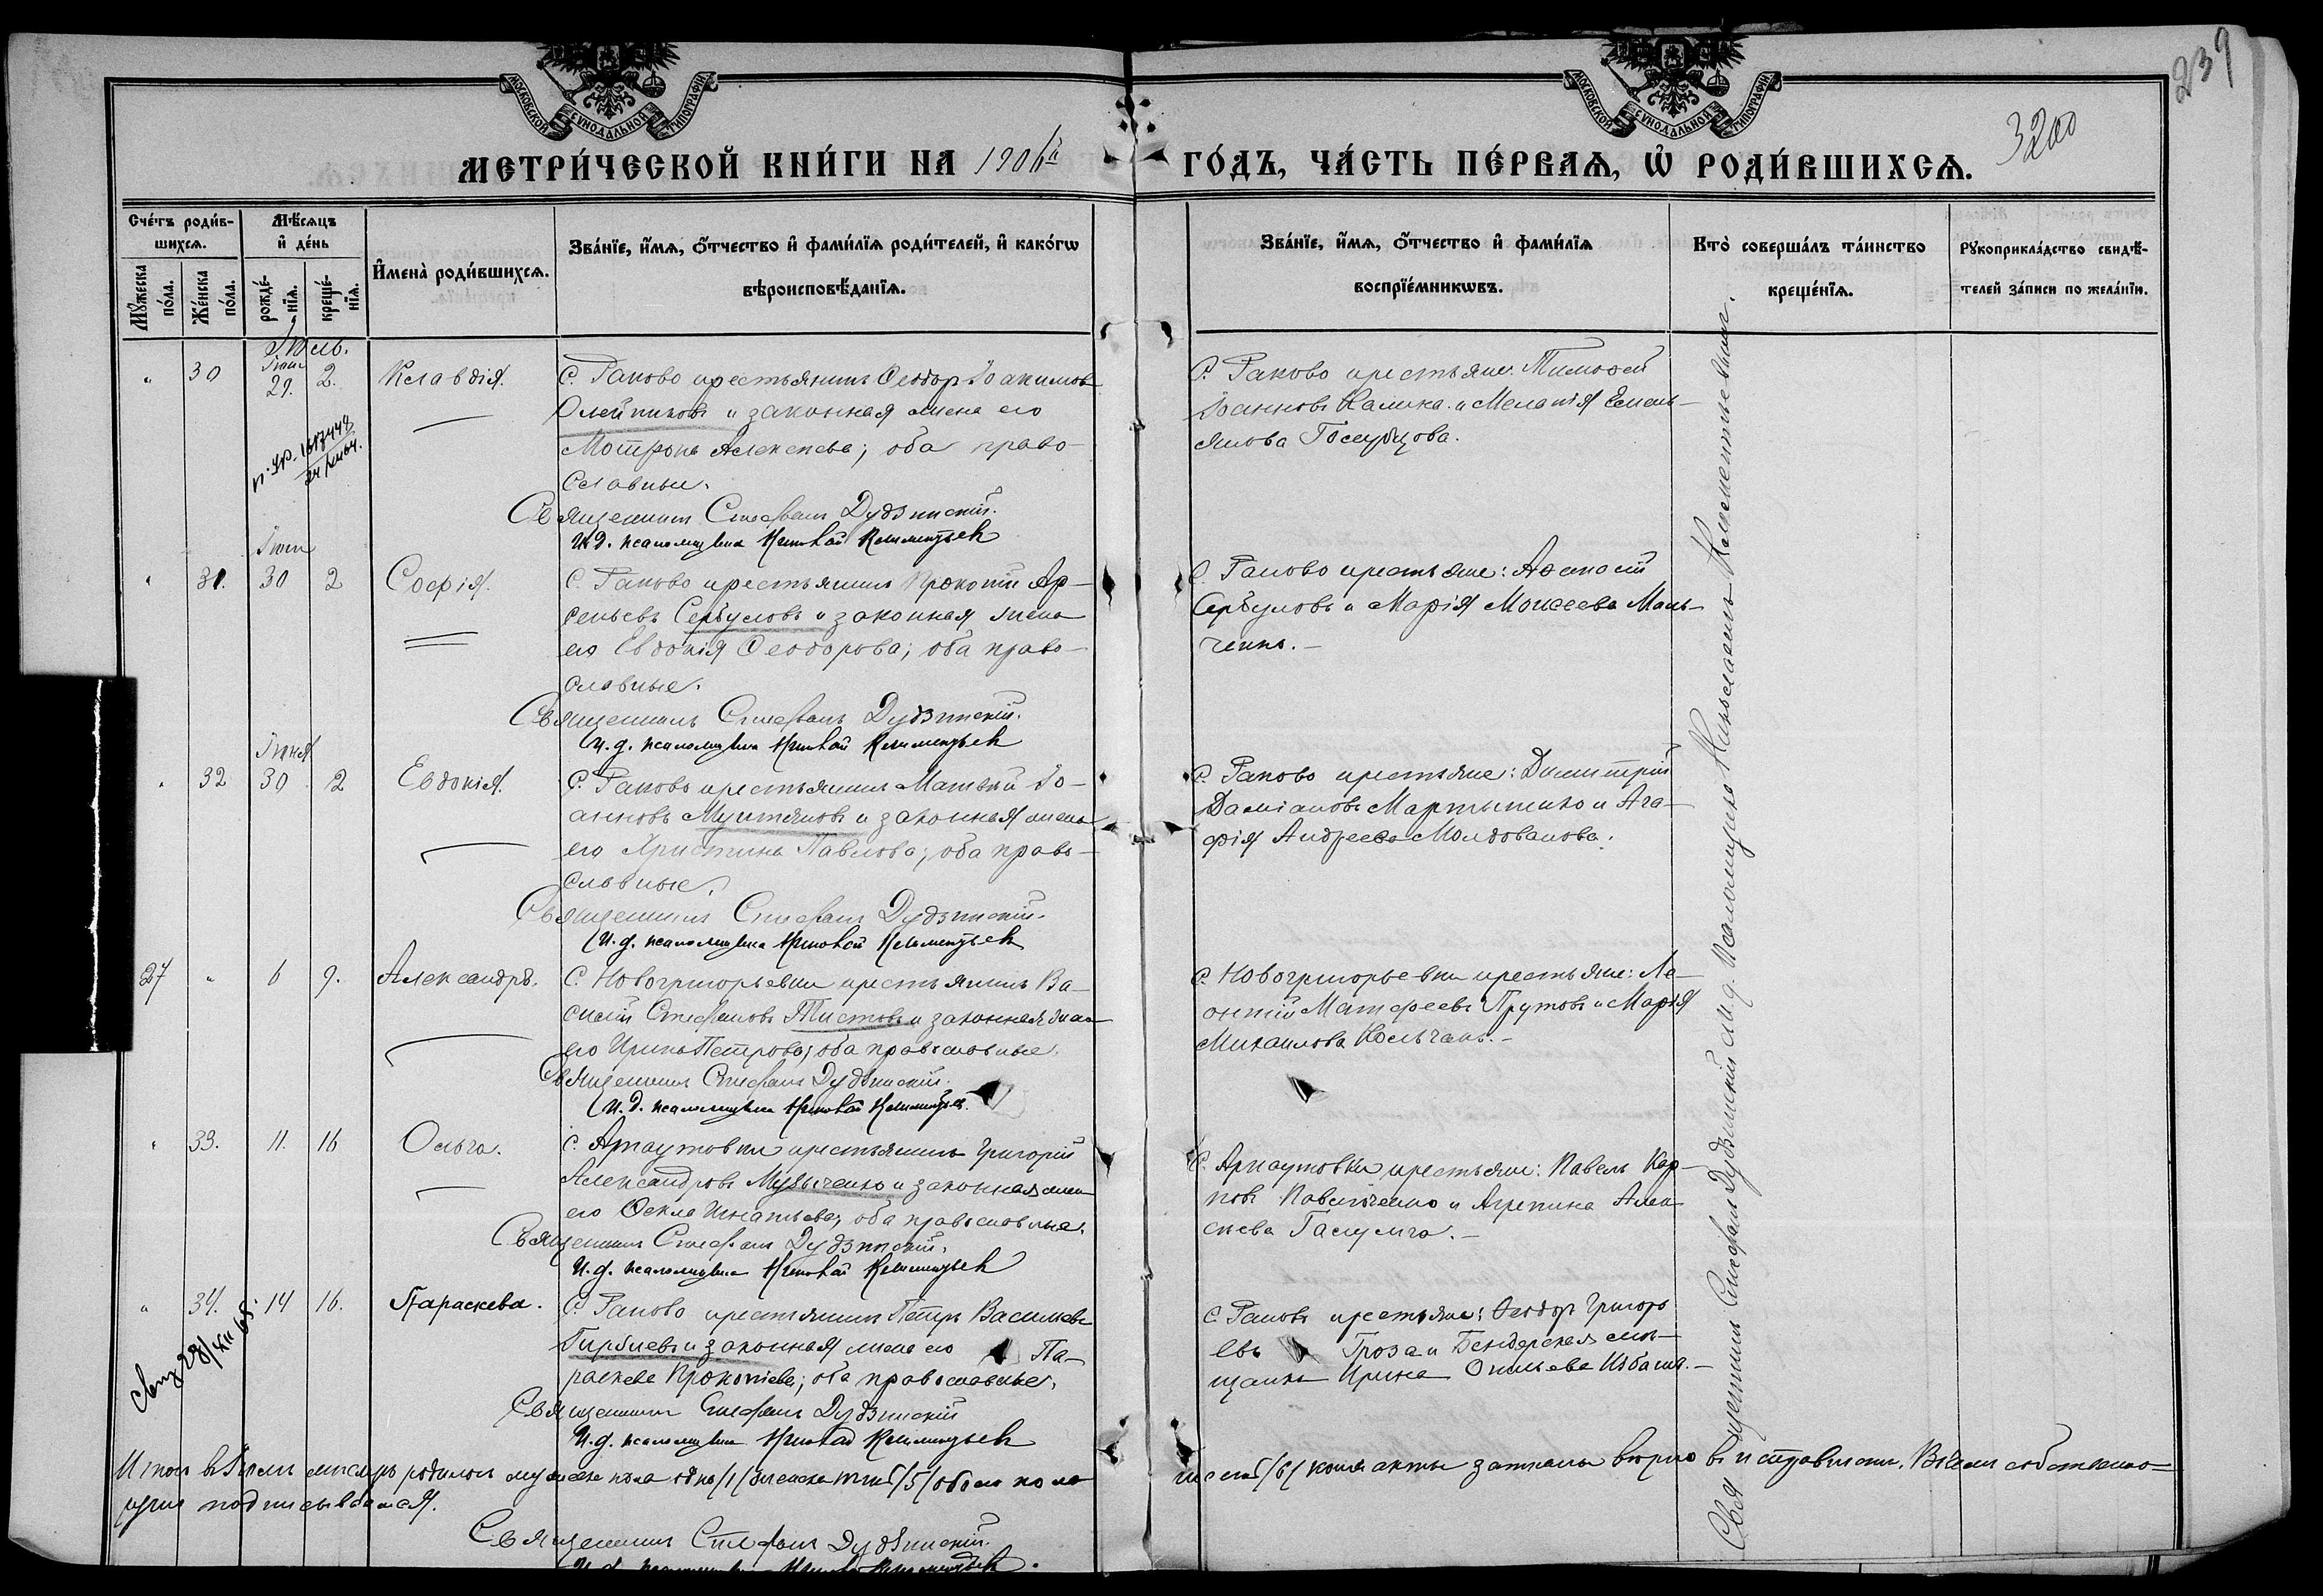 МОСКОВСКОЙ СѴНОДАЛЬНОЙ ТИПОГРАФІИ
МОСКОВСКОЙ СѴНОДАЛЬНОЙ ТИПОГРАФІИ
239
3200
МЕТРИ́ЧЕСКОЙ КНИ́ГИ НА 1906й
ГО́ДЪ, ЧА́СТЬ ПЕ́РВАѦ, Ѡ҆ РОДИ́ВШИХСѦ.
Сче́тъ роди́в-
шихсѧ.
Мꙋ́жеска по́ла.
Же́нска по́ла.
Мѣ́сѧцъ
и҆ де́нь
рожде́-
нїѧ.
креще́-
нїѧ.
И҆мена̀ роди́вшихсѧ.
Зва́нїе, и҆́мѧ, ѻ҆́тчество и҆ фами́лїѧ роди́телей, и҆ како́гѡ
вѣроисповѣ́данїѧ.
Зва́нїе, и҆́мѧ, ѻ҆́тчество и҆ фами́лїѧ
воспрїе́мникѡвъ.
Кто̀ соверша́лъ та́инство
креще́нїѧ.
Рꙋкоприкла́дство свидѣ́-
телей за́писи по жела́нїи.
Іюль.
Іюня
" 30 29. 2. Клавдія.
С. Раково крестьянинъ Ѳеодоръ Іоакимовъ
Олейниковъ и законная жена его
Мотрона Алексеева; оба право
славные.
Священникъ Стефанъ Дудзинскій.
И.д. псаломщика Николай Климентьевъ
С. Раково крестьяне: Тимоѳей
Іоанновъ Калика и Меланія Емель-
янова Голубцова.
Іюня
" 31. 30 2 Софія.
С. Раково крестьянинъ Прокопій Ар-
сеньевъ Сербуловъ и законная жена
его Евдокія Ѳеодорова; оба право-
славные.
Священникъ Стефанъ Дудзинскій.
И.д. псаломщика Николай Климентьевъ
С. Раково крестьяне: Аѳанасій
Сербуловъ и Марія Моисеева Мань-
ченко.-
Іюня
" 32 30 2 Евдокія.
С. Раково крестьянинъ Матвѣй Іо-
анновъ Мунтяновъ и законная жена
его Христина Павлова; оба право-
славные.
Священникъ Стефанъ Дудзинскій.
И.д. псаломщика Николай Климентьевъ
С. Раково крестьяне: Димитрій
Даміановъ Мартыненко и Ага-
фія Андреева Молдованова.
27 " 6 9. Александръ.
С. Новогригорьевки крестьянинъ Ва-
силій Стефановъ Тистовъ и законная жена
его Ирина Петрова; оба православные.
Священникъ Стефанъ Дудзинскій.
И.д. псаломщика Николай Климентьевъ
С. Новогригорьевки крестьяне: Ле-
онтій Матѳеевъ Прутовъ и Марія
Михаилова Кольчакъ.-
" 33. 11. 16 Ольга.
С. Арнаутовки крестьянинъ Григорій
Александровъ Музыченко и законная жена
его Ѳекла Игнатьева; оба православные.
Священникъ Стефанъ Дудзинскій.
И.д. псаломщика Николай Климентьевъ
С. Арнаутовки крестьяне: Павелъ Кар-
повъ Павличенко и Агрепина Алек-
сѣева.-
" 34. 14 16. Параскева.
С. Раково крестьянинъ Петръ Васильевъ
Гирблевъ и законная жена его Па-
раскева Прокопіева; оба православные.
Священникъ Стефанъ Дудзинскій
И.д. псаломщика Николай Климентьевъ
С. Раково крестьяне: Ѳеодоръ Григорь
евъ Гроза и Бендерская мѣ-
щанка Ирина Избаша.-
Священникъ Стефанъ Дудзинскій и И.д. псаломщика Николай Климентьевъ.
Итого въ Іюлѣ мѣсяцѣ родилось мужеска пола одно /1/ женска пять /5/ обоего пола
шесть /6/ коихъ акты записаны вѣрно и исправно. Въ чемъ собственно-
ручно подписываемся.
Священникъ Стефанъ Дудзинскій.
И.д. псаломщика Николай Климентьевъ.